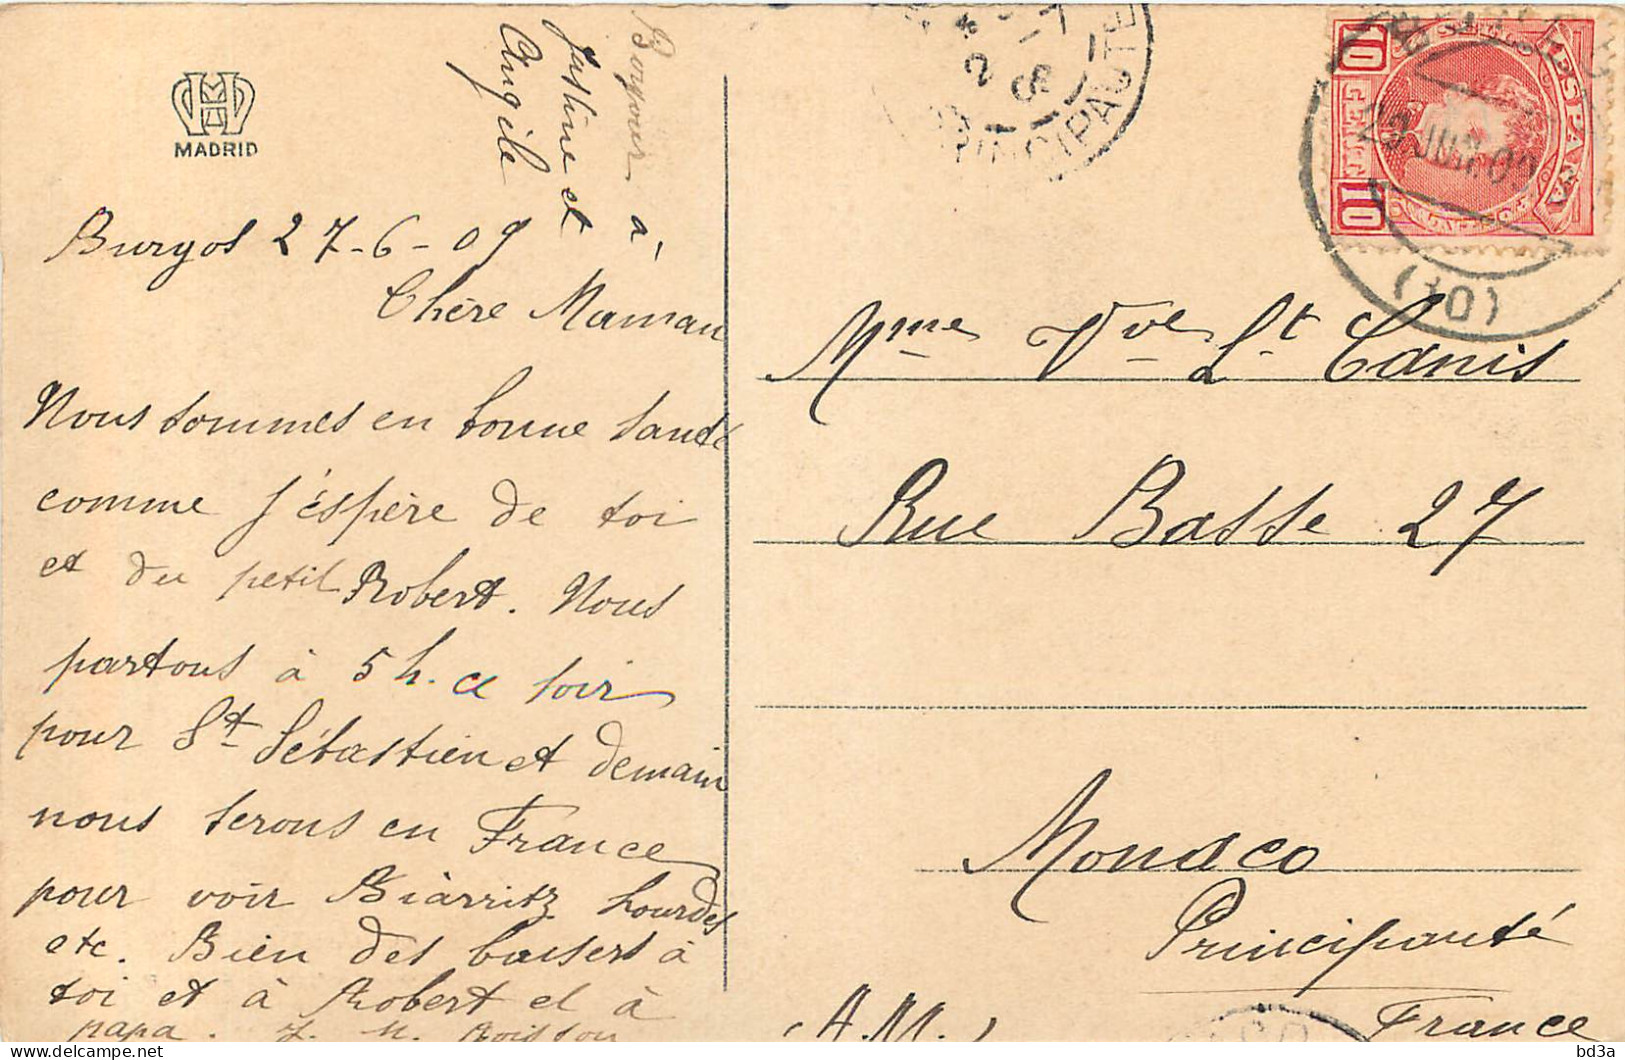 MADRID
Burgos 27-6-09
Chère Maman
Nous sommes en bonne santé
comme j'éspère de toi
et du petit Robert. Nous
partons à 5 h. ce soir
pour St Sébastien et demain
nous serons en France
pour voir Biarritz Lourdes
etc. Bien des baisers à
toi et à Robert et à
papa.
Bonjour à
Justine et
Angèle
PRINCIPAUTE
ESPAÑA
10 CENT. 10
29 JUN. 09
(30)
Mme Vve St Canis
Rue Basse 27
Monaco
Principauté
(A.M.) France
bd3a